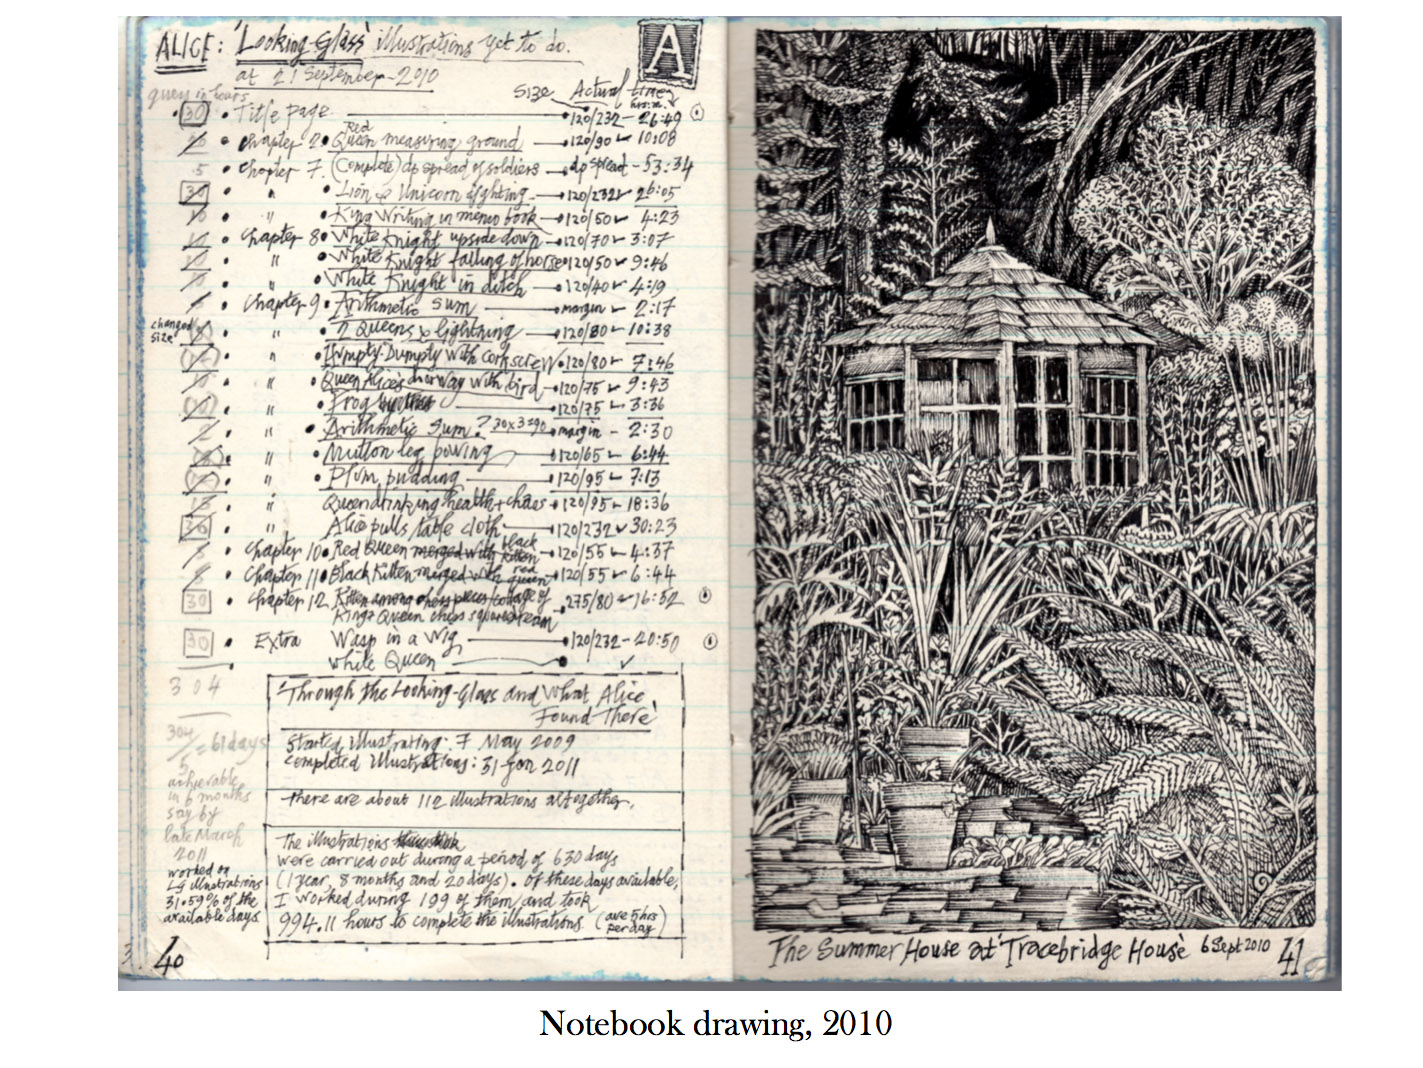 ALICE: 'Looking-Glass' illustrations yet to do.
A
at 21 September-2010
guess in hours
Size Actual time
hrs:m.
30 • Title page 120/232 - 26:49
• Chapter 2 • Red Queen measuring ground 120/90 - 10:08
5 • Chapter 7. (Complete) dp spread of soldiers dp spread - 53:34
30 • " • Lion & Unicorn fighting 120/232 26:05
10 • " • King Writing in memo book 120/50 4:23
• Chapter 8 • White Knight upside down 120/70 3:07
10 • " • White Knight falling of horse 120/50 9:46
• " • White Knight in ditch 120/40 4:19
• Chapter 9 • Arithmetic sum margin 2:17
changed size • " • 2 Queens & lightning 120/80 10:38
• " • Humpty-Dumpty with corkscrew 120/80 7:46
10 • " • Queen Alice's doorway with bird 120/75 9:43
• " • Frog 120/75 3:36
2 • " • Arithmetic Sum? 30x3=90 margin - 2:30
• " • Mutton leg bowing 120/65 6:44
• " • Plum pudding 120/95 7:13
15 • " Queen drinking health + chaos 120/95 18:36
30 • " Alice pulls table cloth 120/232 30:23
• Chapter 10 • Red Queen merged with black kitten 120/55 4:37
• Chapter 11 • Black Kitten merged with red queen 120/55 6:44
30 • Chapter 12 Kitten among chess pieces/collage of 275/80 16:52
King + Queen chess
30 • Extra Wasp in a Wig 120/232 - 20:50
White Queen
304
304/5 = 61 days
achievable
in 6 months
say by
late March
2011
worked on
LG illustrations
31.59% of the
available days
'Through the Looking-Glass and What Alice
Found There'
Started illustrating: 7 May 2009
Completed illustrations: 31 Jan 2011
There are about 112 illustrations altogether.
The illustrations
were carried out during a period of 630 days
(1 year, 8 months and 20 days). Of these days available,
I worked during 199 of them and took
994.11 hours to complete the illustrations. (ave 5 hrs per day)
3
40
The Summer House at 'Tracebridge House' 6 Sept 2010 41
Notebook drawing, 2010